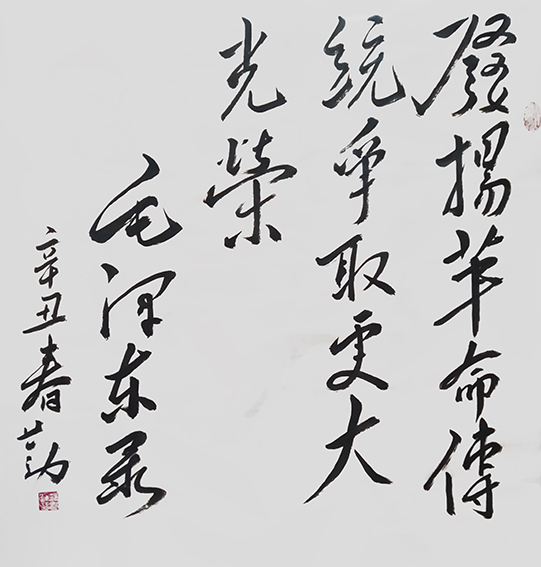 發揚革命傳
統爭取更大
光榮
毛泽东录
辛丑春